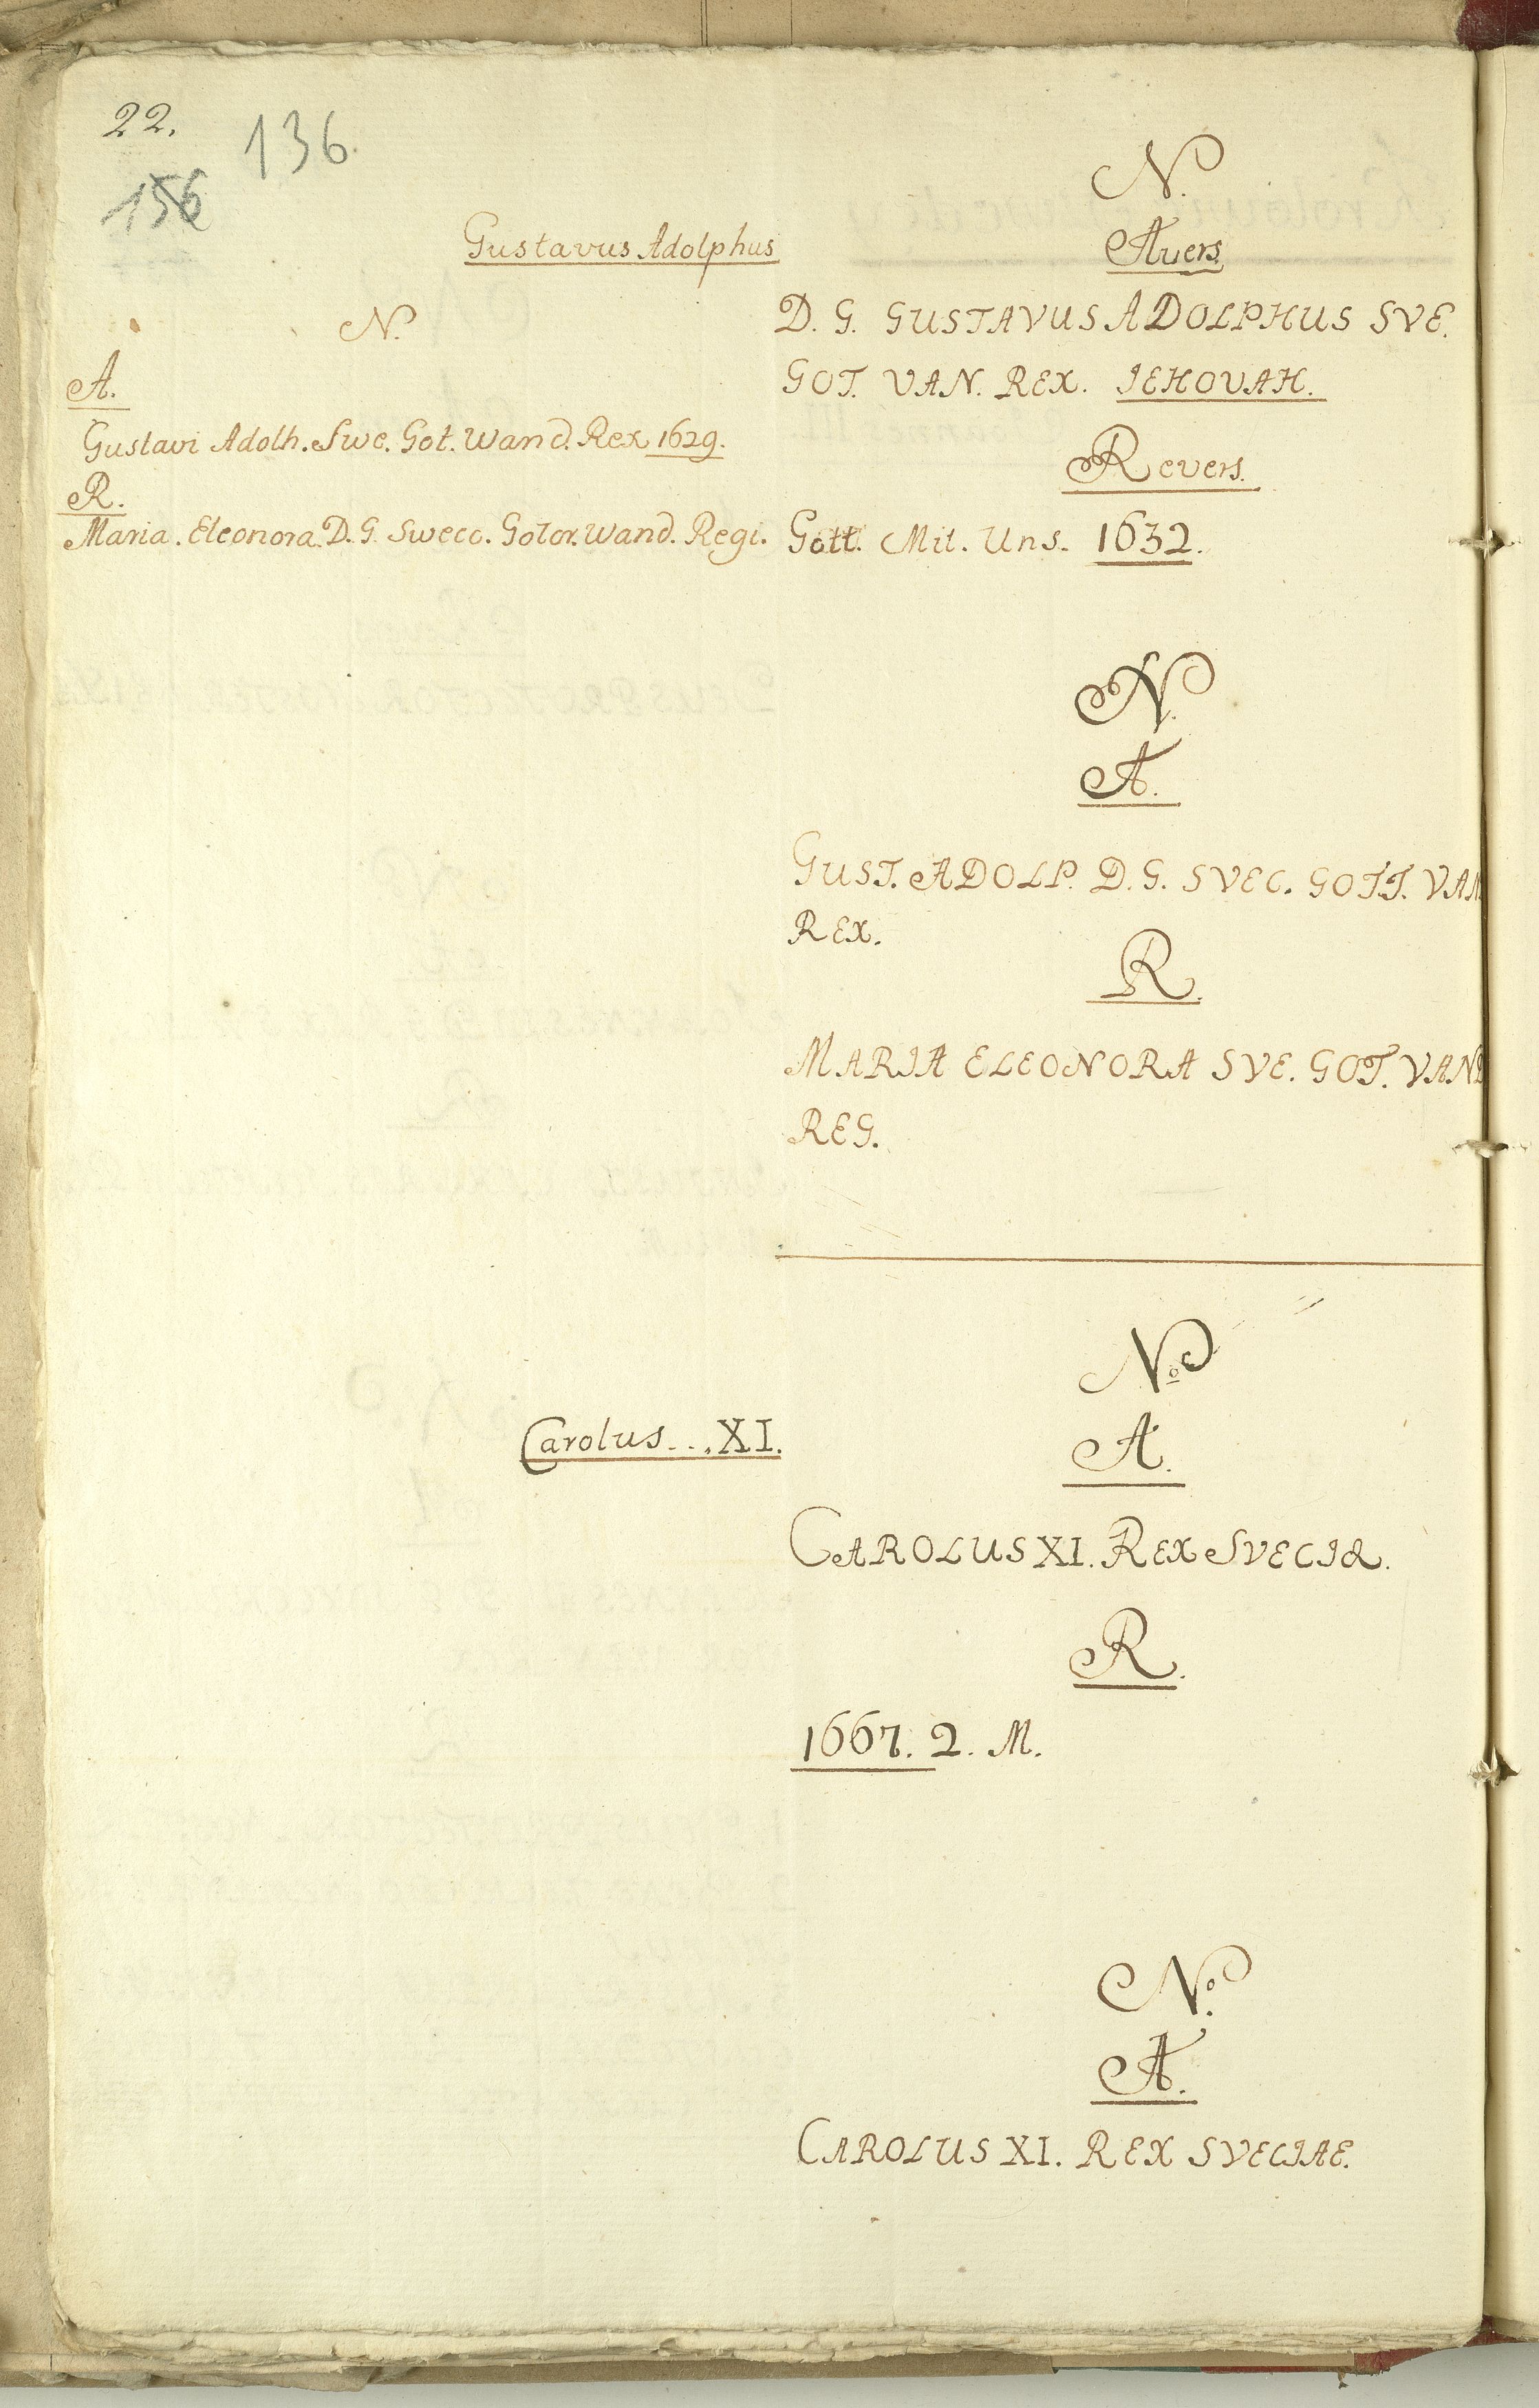 22.
136.
156
Gustavus Adolphus
N.
A.
Gustavi Adolh. Swe. Got. Wand. Rex 1629.
R.
Maria. Eleonora. D. G. Swecc. Gotor. Wand. Regi.
N.
Avers.
D. G. GUSTAVUS ADOLPHUS SVE.
GOT. VAN. REX. IEHOVAH.
Revers.
Gott. Mit. Uns. 1632.
N.
A.
GUST. ADOLP. D. G. SVEC. GOTT. VAN
REX.
R.
MARIA ELEONORA SVE. GOT. VAND
REG.
Carolus... XI.
No
A.
CAROLUS XI. REX SVECIÆ.
R.
1667. 2. M.
No.
A.
CAROLUS XI. REX SVECIAE.